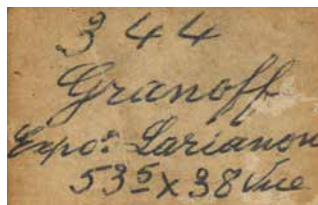 344
Granoff
Expo: Larianow
53⁵ x 38 Vue